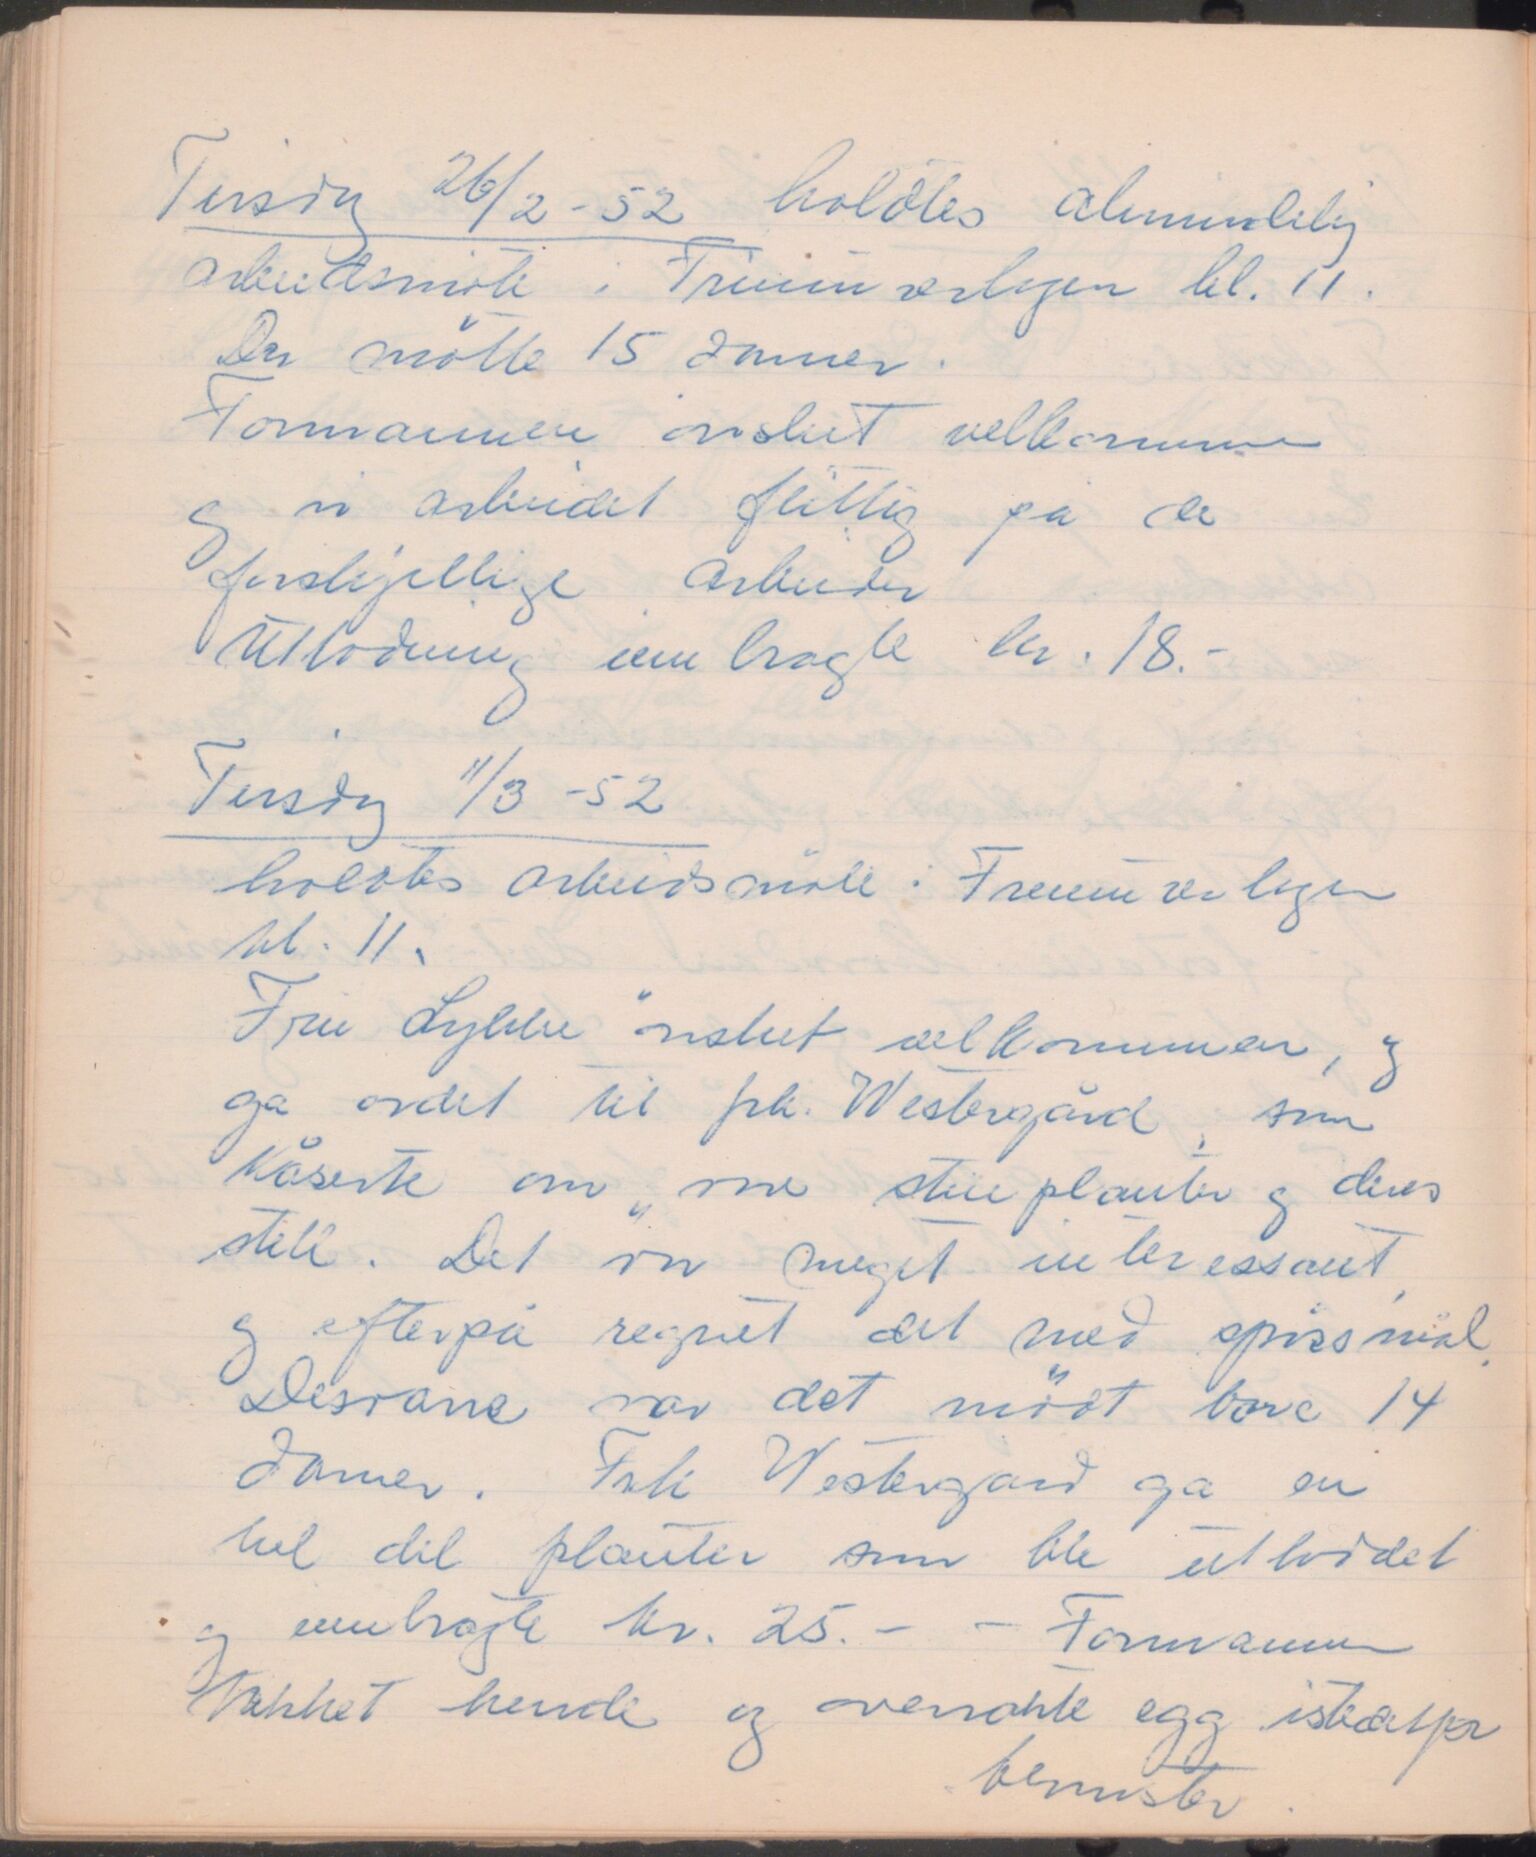 Tirsdag 26/2-52 holdtes alminnelig
arbeidsmöte i Frimurerlogen kl. 11.
Der mötte 15 damer.
Formannen önsket velkommen
og vi arbeidet flittig på de
forskjellige arbeider
Utlodning innbragte kr. 18.-
Tirsdag 11/3-52
holdtes arbeidsmöte i Frimurerlogen
kl. 11.
Fru Lykke önsket velkommen, og
ga ordet til frk. Westergård, som
kåserte om stueplanter og deres
stell. Det var meget interessant,
og efterpå regnet det med spörsmål.
Desvarre var det mödt bare 14
damer. Frk Westergård ga en
hel del planter som ble utloddet
og innbragte kr. 25.- - Formannen
takket hende og overrakte egg istedetfor
blomster.